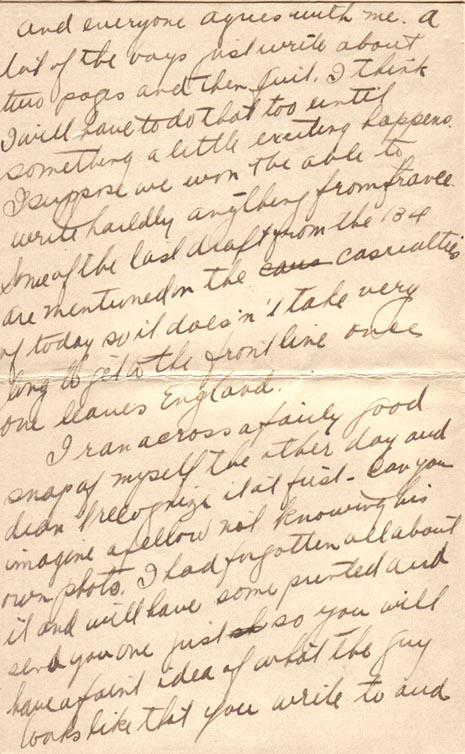 and everyone agrees with me. A
lot of the boys just write about
two pages and then quit. I think
I will have to do that too until
something a little exciting happens.
I suppose we won't be able to
write hardly anything from France.
Some of the last draft from the 134
are mentioned on the caus casualties
of today so it doesn't take very
long to get to the front line once
one leaves England.
I ran across a fairly good
snap of myself the other day and
didn't recognize it at first - Can you
imagine a fellow not knowing his
own photo. I had forgotten all about
it and will have some printed and
send you one just sh so you will
have a faint idea of what the guy
looks like that you write to and